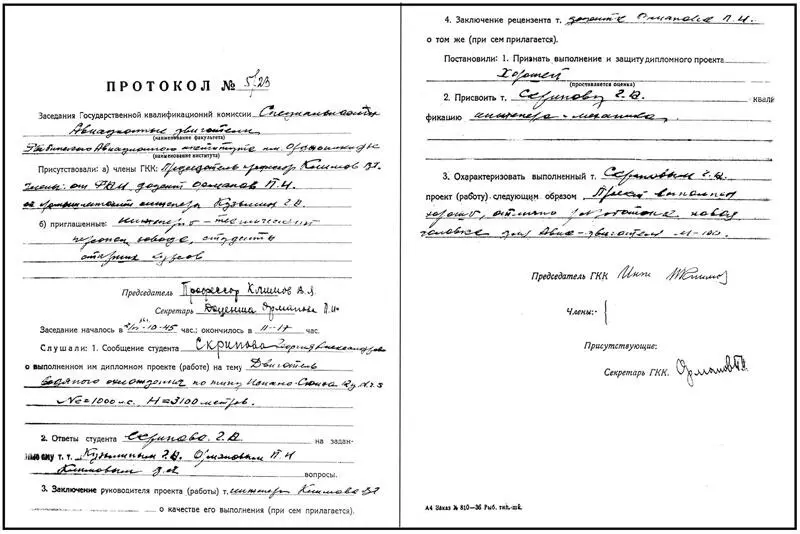 ПРОТОКОЛ № 5/23
Заседания Государственной квалификационной комиссии Специальность
Авиационные двигатели
(наименование факультета)
Рыбинского Авиационного института им. Орджоникидзе
(наименование института)
Присутствовали: а) члены ГКК: Председатель профессор Климов В.Я.
Члены: от РАИ доцент Орманов П.И.
от промышленности инженера Кузьмин Г.В.
б) приглашенные: инженерно-технический
персонал завода, студенты
старших курсов
Председатель Профессор Климов В.Я.
Секретарь Доцент Орманов П.И.
Заседание началось в 10-45 час.; окончилось в 11-17 час.
Слушали: 1. Сообщение студента Скрипова Георгия Александров
о выполненном им дипломном проекте (работе) на тему Двигатель
водяного охлаждения по типу Испано-Сюиза
Ne=1000 л.с. H=3100 метров.
2. Ответы студента Скрипова Г.А. на задан-
ные ему т. т. Кузьминым Г.В. Ормановым П.И
Климовым В.Я. вопросы.
3. Заключение руководителя проекта (работы) т. инженера Климова В.Я
о качестве его выполнения (при сем прилагается).
4. Заключение рецензента т. доцента Орманова П.И.
о том же (при сем прилагается).
Постановили: 1. Признать выполнение и защиту дипломного проекта
Хорошей
(проставляется оценка)
2. Присвоить т. Скрипову Г.А. квали
фикацию инженера-механика
3. Охарактеризовать выполненный т. Скриповым Г.А.
проект (работу) следующим образом Проект выполнен
хорошо, отлично разработана новая
головка для Авиа-двигателя М-100.
Председатель ГКК Инж Климов
Члены:
Присутствующие:
Секретарь ГКК. Орманов П.И.
А4 Заказ № 810—36 Рыб. тип.-шк.